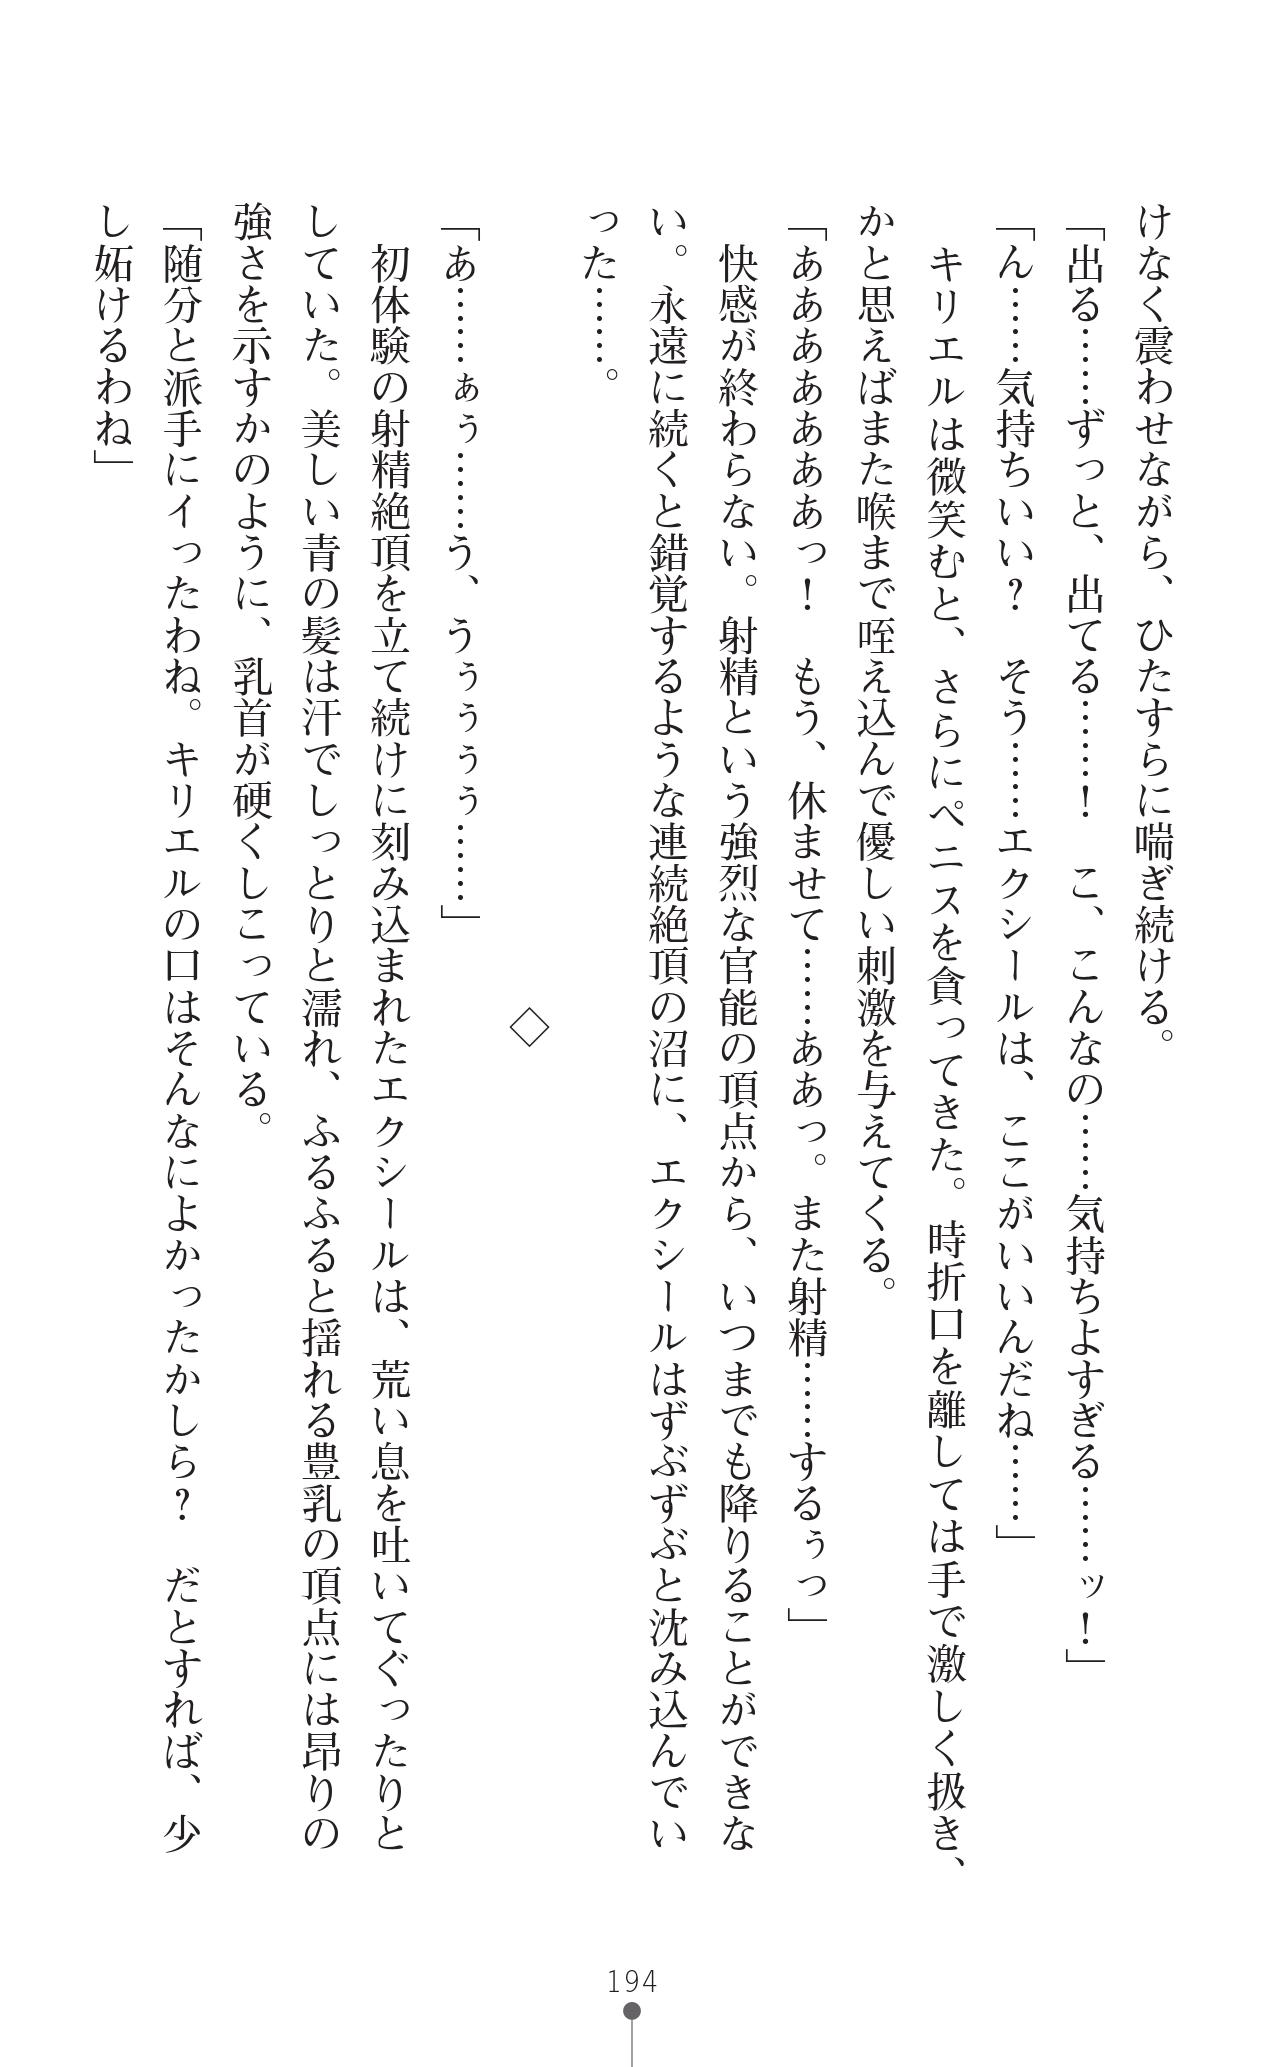 けなく震わせながら、ひたすらに喘ぎ続ける。
「出る……ずっと、出てる……！　こ、こんなの……気持ちよすぎる……ッ！」
「ん……気持ちいい？　そう……エクシールは、ここがいいんだね……」
　キリエルは微笑むと、さらにペニスを貪ってきた。時折口を離しては手で激しく扱き、
かと思えばまた喉まで咥え込んで優しい刺激を与えてくる。
「あああああああっ！　もう、休ませて……ああっ。また射精……するぅっ」
　快感が終わらない。射精という強烈な官能の頂点から、いつまでも降りることができな
い。永遠に続くと錯覚するような連続絶頂の沼に、エクシールはずぶずぶと沈み込んでい
った……。
◇
「あ……ぁぅ……う、うぅぅぅぅ……」
　初体験の射精絶頂を立て続けに刻み込まれたエクシールは、荒い息を吐いてぐったりと
していた。美しい青の髪は汗でしっとりと濡れ、ふるふると揺れる豊乳の頂点には昂りの
強さを示すかのように、乳首が硬くしこっている。
「随分と派手にイったわね。キリエルの口はそんなによかったかしら？　だとすれば、少
し妬けるわね」
194